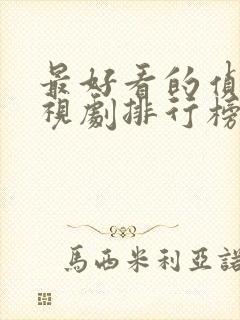 最好看的偵
視劇排行榜
馬西米利亞諾